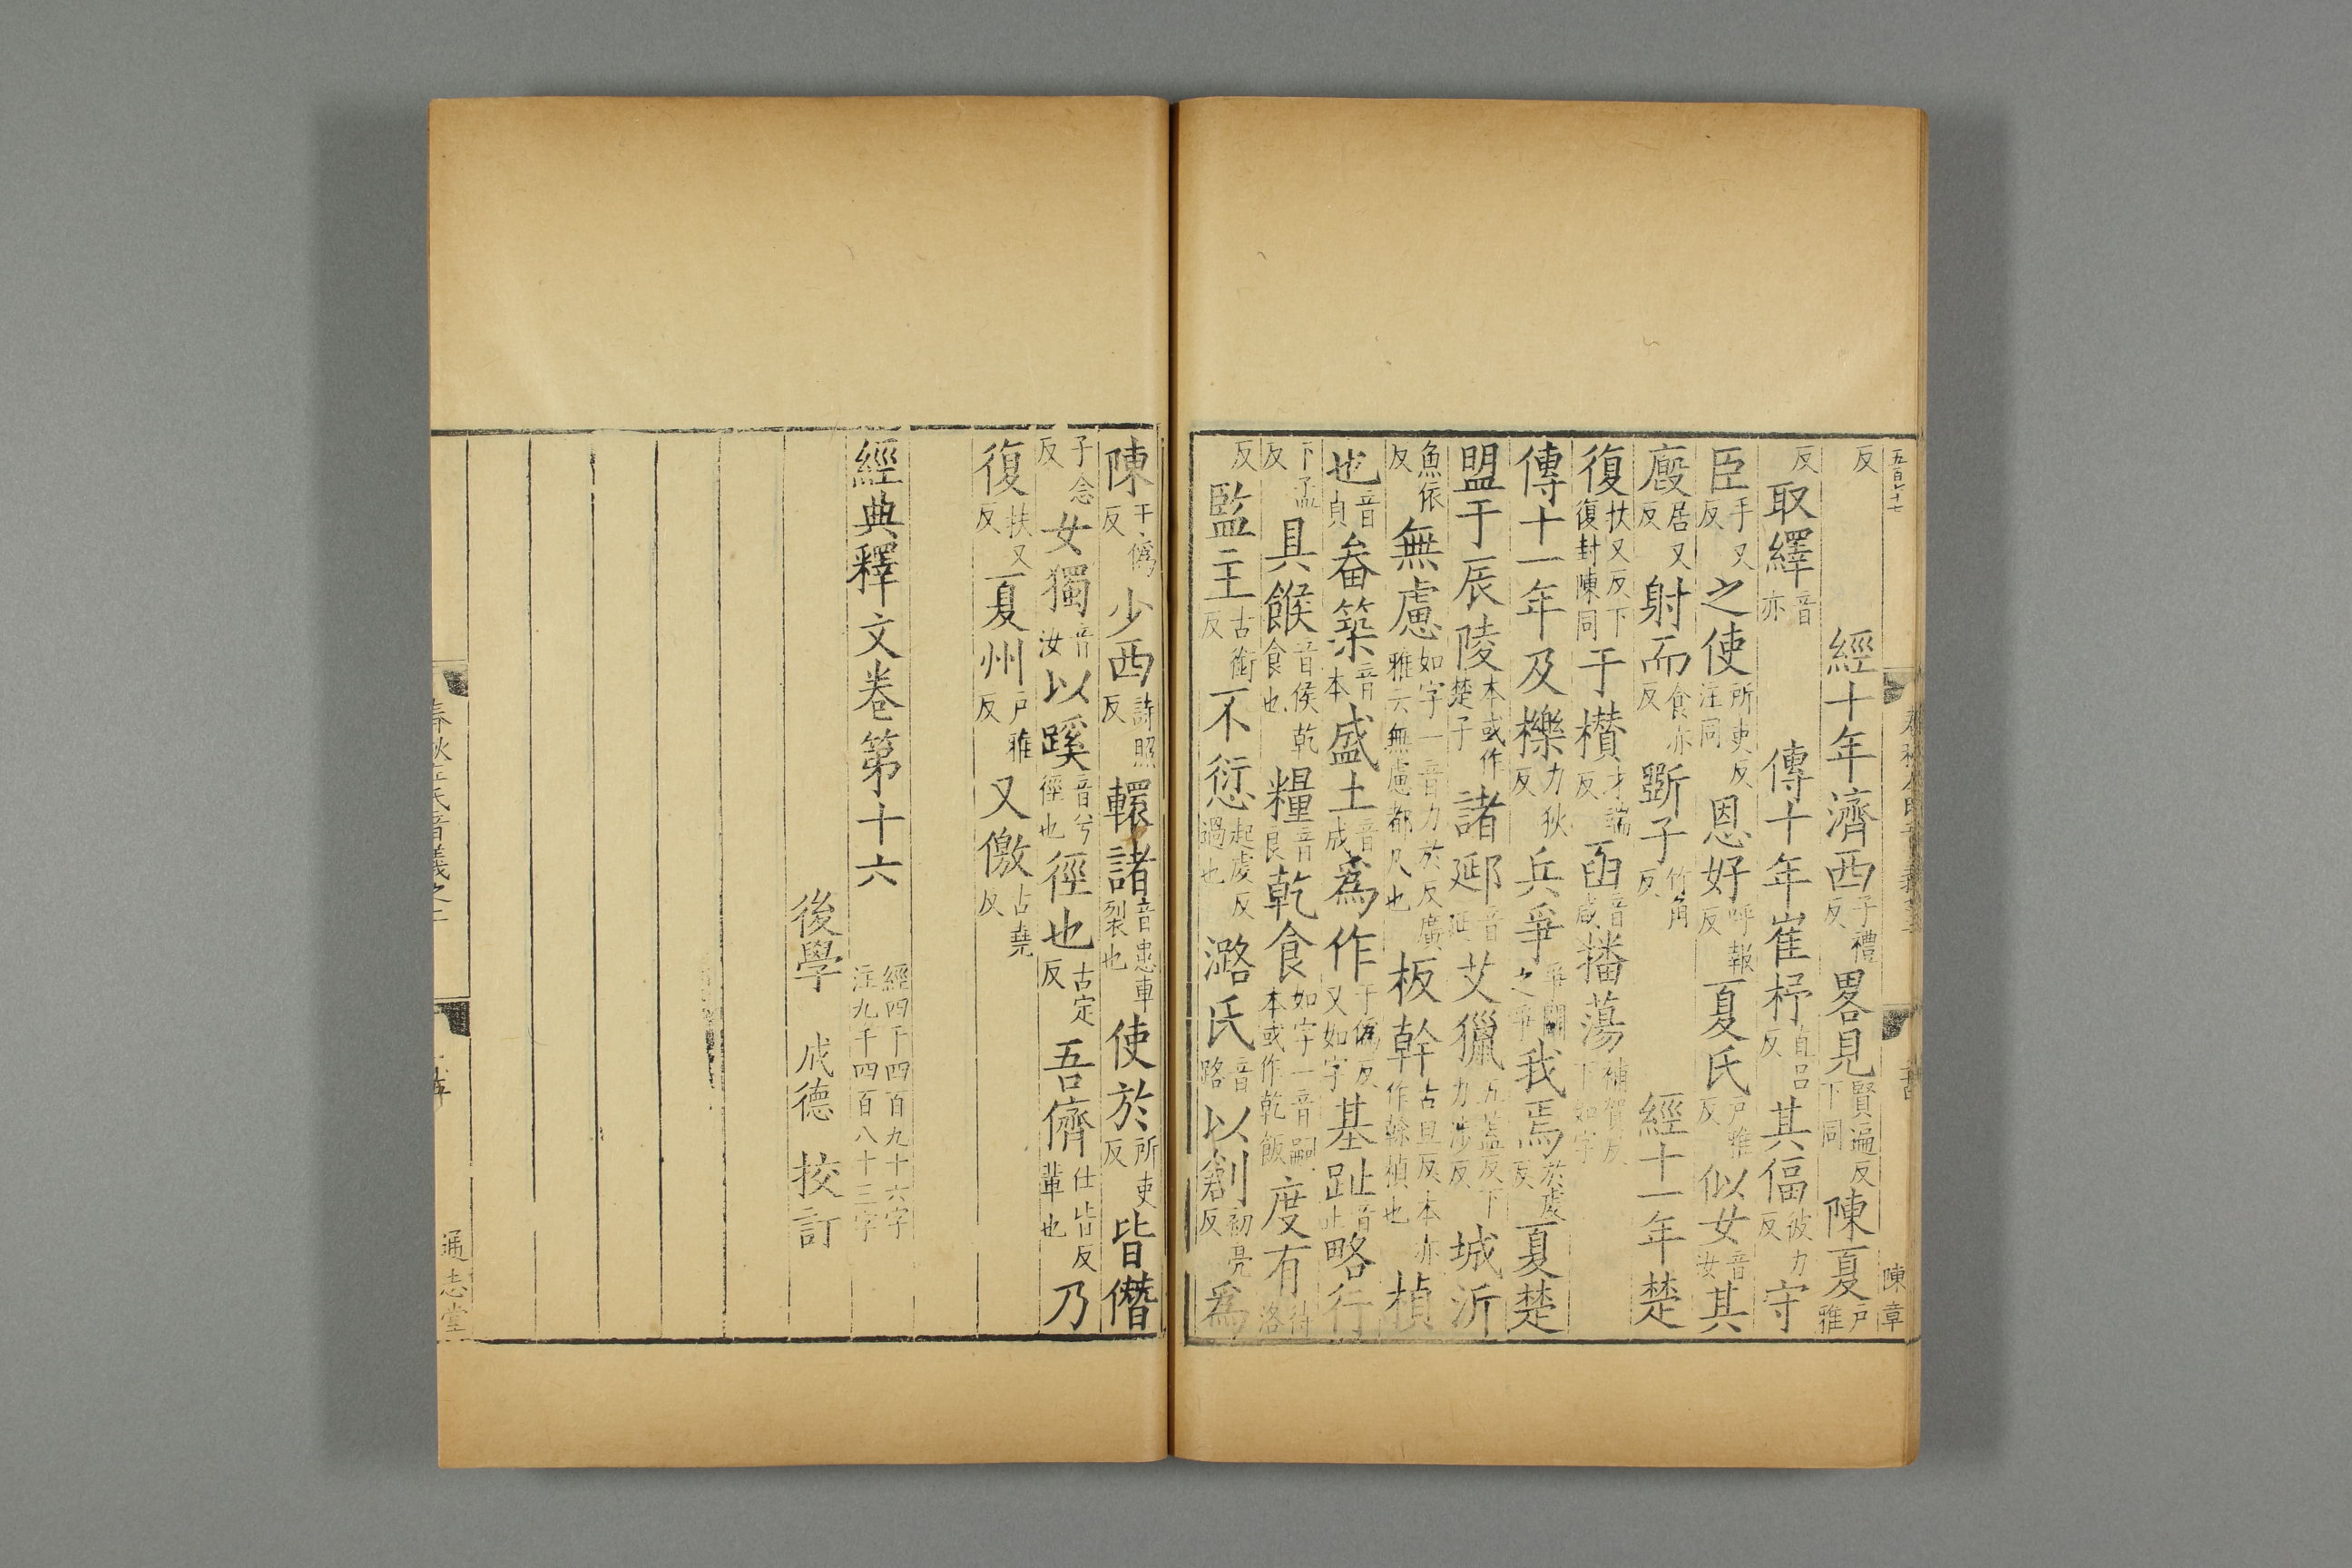 五百七十七
陳章
反 經十年濟西子禮反畧見賢遍反下同陳夏戶雅
反取繹音亦 傳十年崔杼直呂反其偪彼力反守
臣手又反之使所吏反注同恩好呼報反夏氏戶雅反似女音汝其
廄居又反射而食亦反斵子竹角反 經十一年楚
復扶又反下復封陳同于欑才端反函音咸播蕩補賀反下如字
傳十一年及櫟力狄反兵爭爭鬬之爭我焉於虔反夏楚
盟于辰陵本或作楚子諸郔音延艾獵五蓋反下力涉反城沂
魚依反無慮如字一音力於反廣雅云無慮都凡也板幹古旦反本亦作榦楨也楨
音貞也畚築音本盛土音成為作于偽反又如字基趾音止略行
下孟反具餱音侯乾食也糧音良乾食如字一音嗣本或作乾飯度有待洛
反監主古銜反不愆起虔反過也潞氏音路以創初亮反爲
陳于僞反少西詩照反轘諸音患車裂也使於所吏反皆僭
子念反女獨音汝以蹊音兮徑也徑也古定反吾儕仕皆反輩也乃
復扶又反夏州戶雅反又儌古堯反
經典釋文卷第十六
經四千四百九十六字
注九千四百八十三字
後學 成德 挍訂
春秋左氏音義之二
通志堂